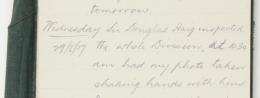 tomorrow.
Wednesday Sir Douglas Haig inspected
29/8/17 the whole Division, at 10.30
am had my photo taken
shaking hands with him